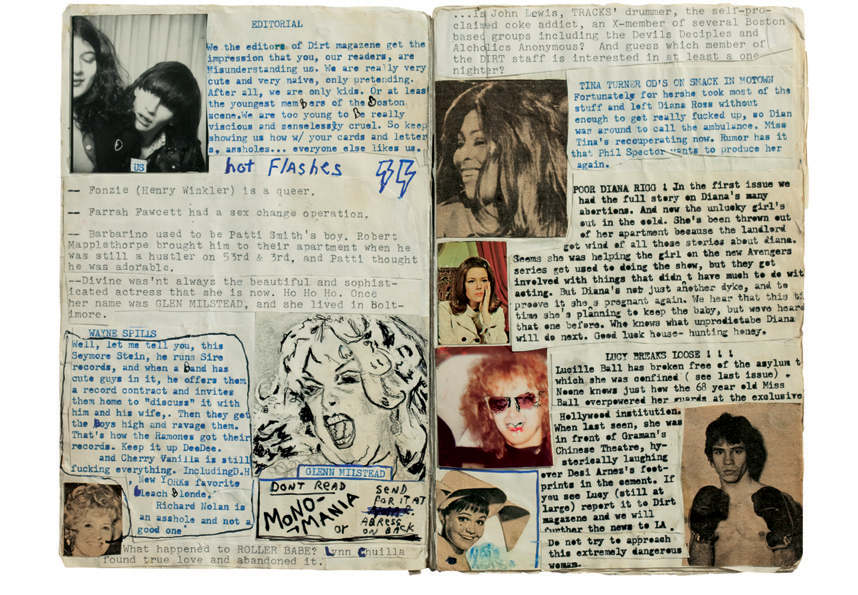 EDITORIAL
We the editors of Dirt magazine get the
impression that you, our readers, are
Misunderstanding us. We are really very
cute and very naive, only pretending.
After all, we are only kids. Or at least
the youngest members of the Boston
scene.We are too young to Be really
viscious and senselessly cruel. So keep
showing us how w/ your cards and letter
s, assholes... everyone else likes us.
US
hot Flashes
-- Fonzie (Henry Winkler) is a queer.
-- Farrah Fawcett had a sex change operation.
-- Barbarino used to be Patti Smith's boy. Robert
Mapplethorpe brought him to their apartment when he
was still a hustler on 53rd & 3rd, and Patti thought
he was adorable.
--Divine was'nt always the beautiful and sophist-
icated actress that she is now. Ho Ho Ho. Once
her name was GLEN MILSTEAD, and she lived in Bolt-
imore.
WAYNE SPILLS
Well, let me tell you, this
Seymore Stein, he runs Sire
records, and when a band has
cute guys in it, he offers them
a record contract and invites
them home to "discuss" it with
him and his wife,. Then they get
the boys high and ravage them.
That's how the Ramones got their
records. Keep it up DeeDee.
and Cherry Vanilla is still
fucking everything. IncludingD.H
, New YORKs favorite
bleach Blonde.
Richard Nolan is
an asshole and not a
good one
GLENN MILSTEAD
DONT READ
MONO-
MANIA
or
SEND
FOR IT AT
ADRESS
ON BACK
What happened to ROLLER BABE? Lynn Chuilla
found true love and abandoned it.
...is John Lewis, TRACKS' drummer, the self-pro-
claimed coke addict, an X-member of several Boston
based groups including the Devils Deciples and
Alcholics Anonymous? And guess which member of
the DIRT staff is interested in at least a one
nighter?
TINA TURNER OD'S ON SMACK IN MOTOWN
Fortunately for hershe took most of the
stuff and left Diana Ross without
enough to get really fucked up, so Dian
was around to call the ambulance. Miss
Tina's recouperting now. Rumor has it
that Phil Spector wants to produce her
again.
POOR DIANA RIGG ! In the first issue we
had the full story on Diana's many
abortions. And now the unlucky girl's
out in the cold. She's been thrown out
of her apartment because the landlord
got wind of all those stories about diana.
Seems she was helping the girl on the new Avengers
series get used to doing the show, but they got
involved with things that didn t have much to do wit
acting. But Diana's not just another dyke, and to
proove it she s pregnant again. We hear that this ti
time she's planning to keep the baby, but wove heard
that one before. Who knows what unpredictabe Diana
will do next. Good luck house- hunting honey.
LUCY BREAKS LOOSE ! ! !
Lucille Ball has broken free of the asylum t
which she was confined ( see last issue) .
Noone knows just how the 68 year old Miss
Ball overpowered her guards at the exclusive
Hollywood institution
When last seen, she was
in front of Graman's
Chinese Theatre, hy-
sterically laughing
over Desi Arnez's foot-
prints in the cement. If
you see Lucy (still at
large) report it to Dirt
magazine and we will
further the news to LA .
Do not try to approach
this extremely dangerous
woman.